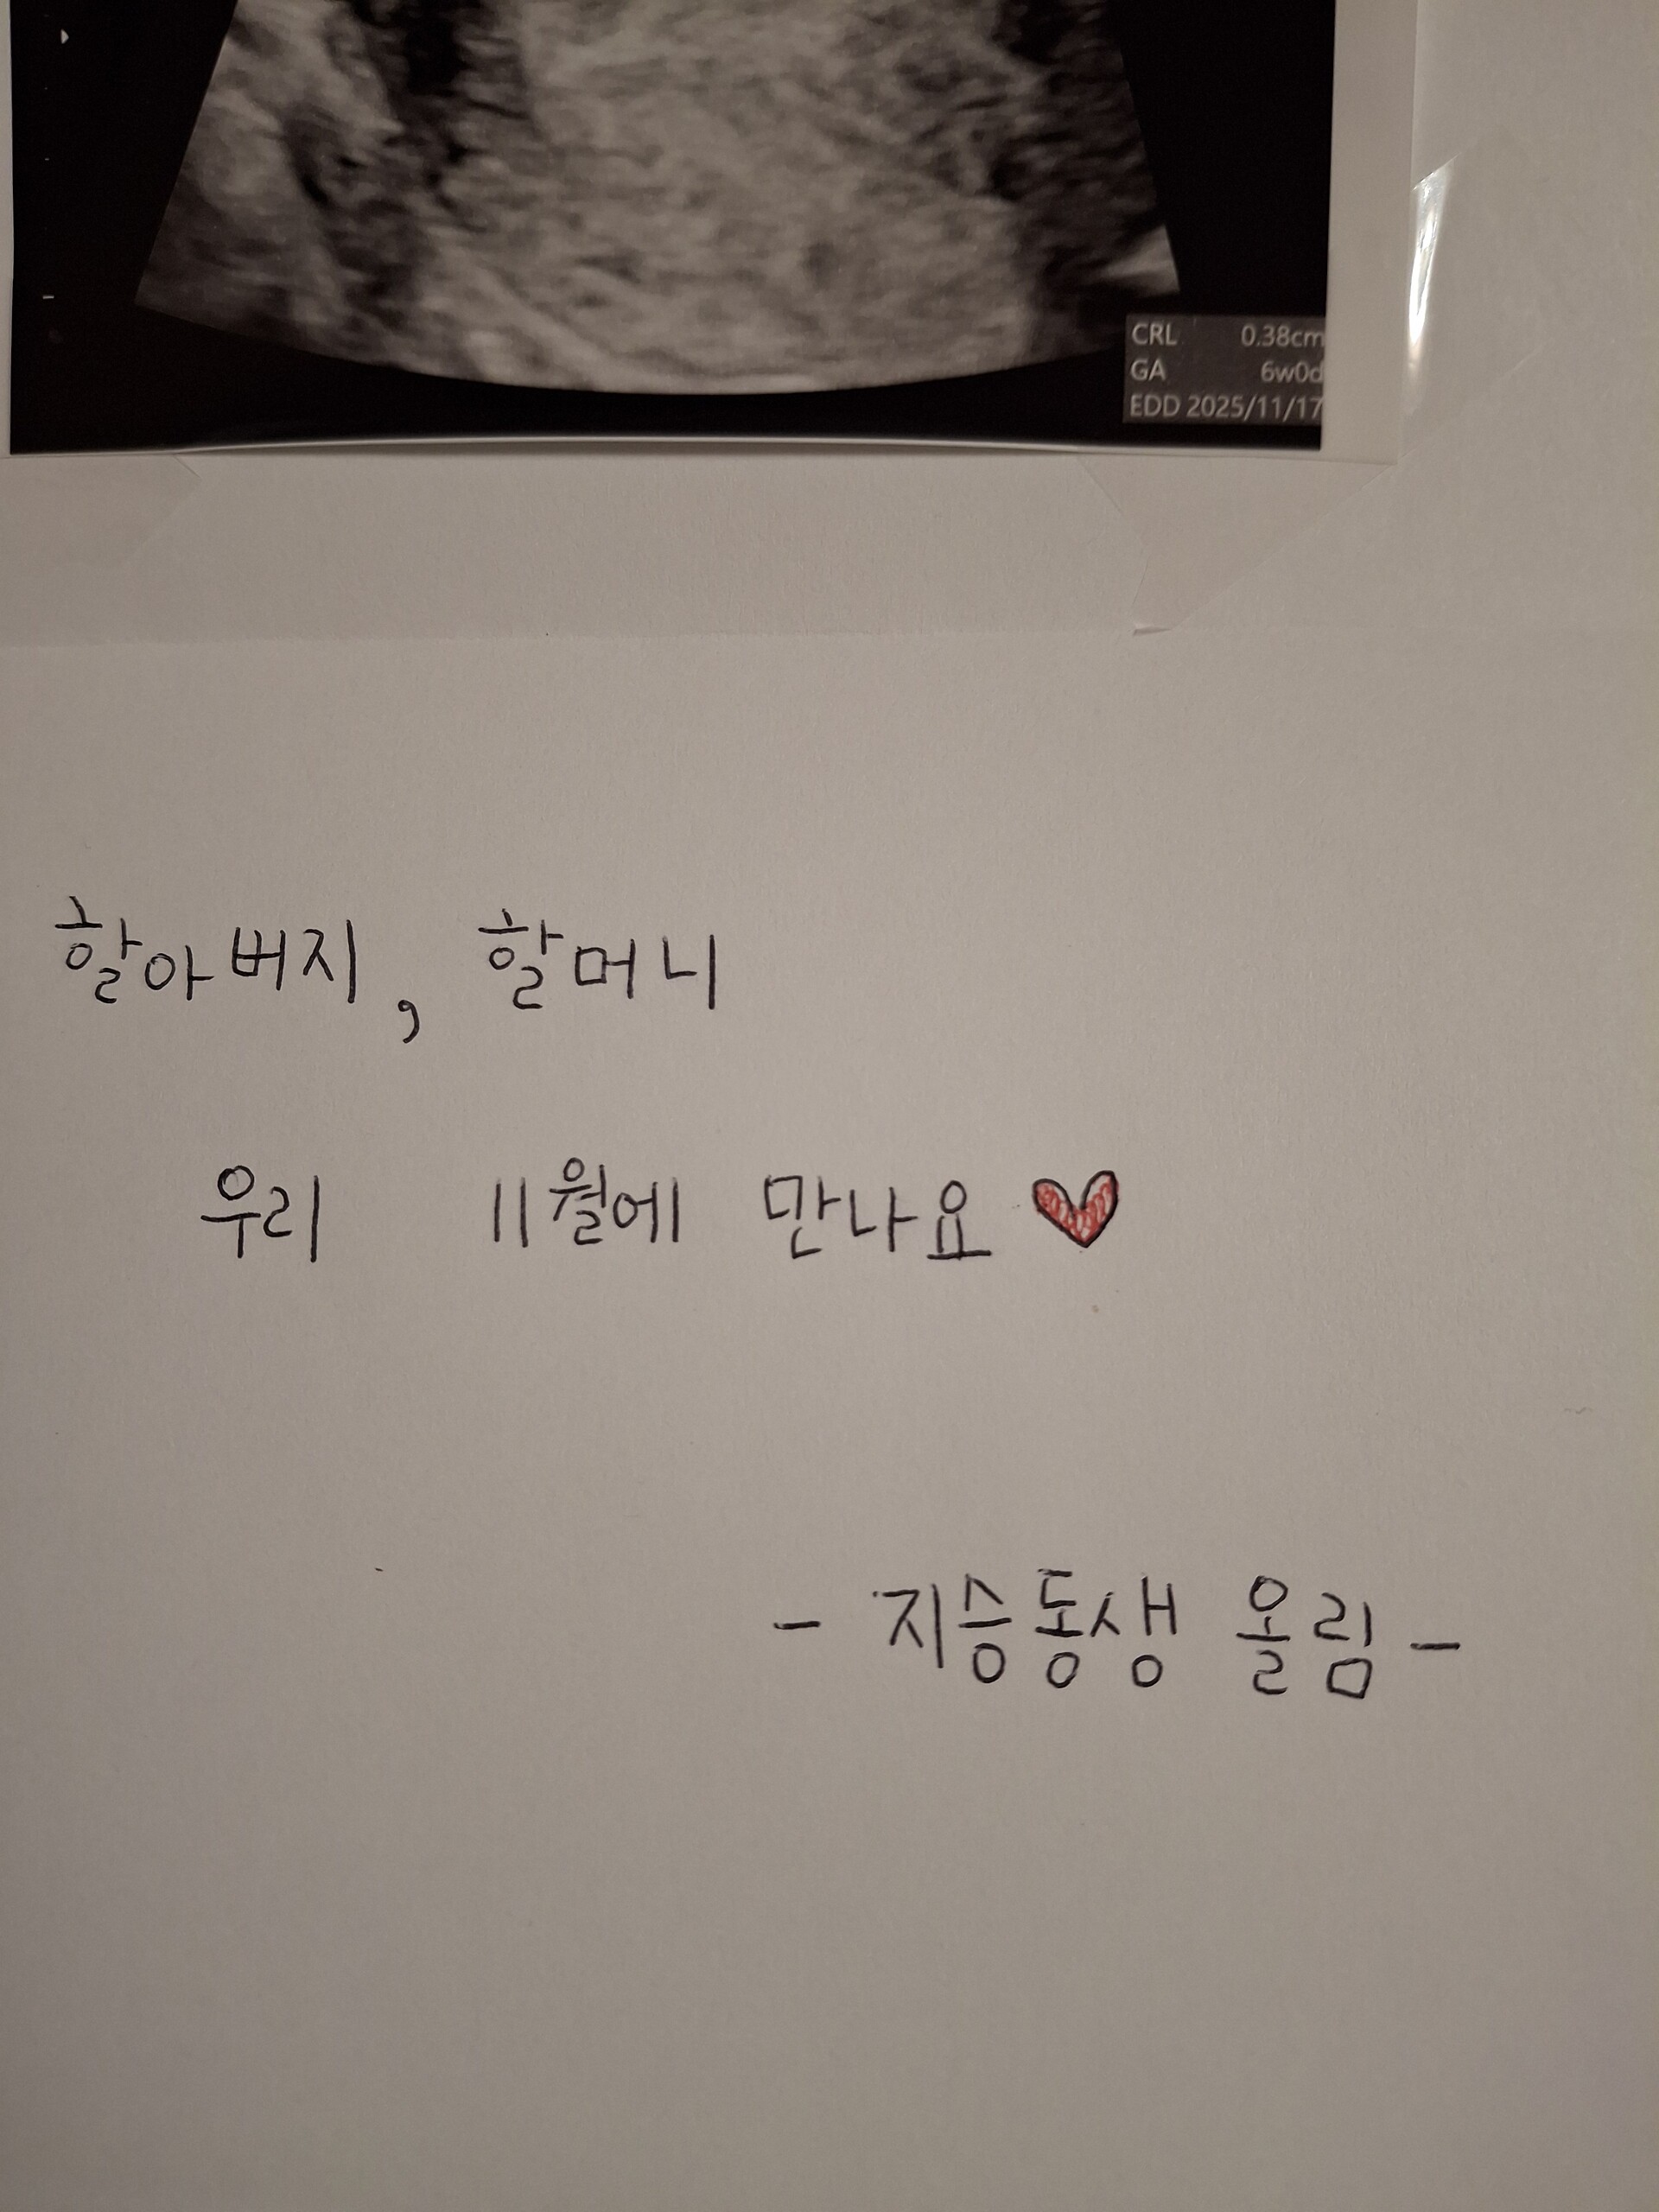 CRL 0.38cm
GA 6w0d
EDD 2025/11/17
할아버지, 할머니
우리 11월에 만나요
- 지승동생 올림 -